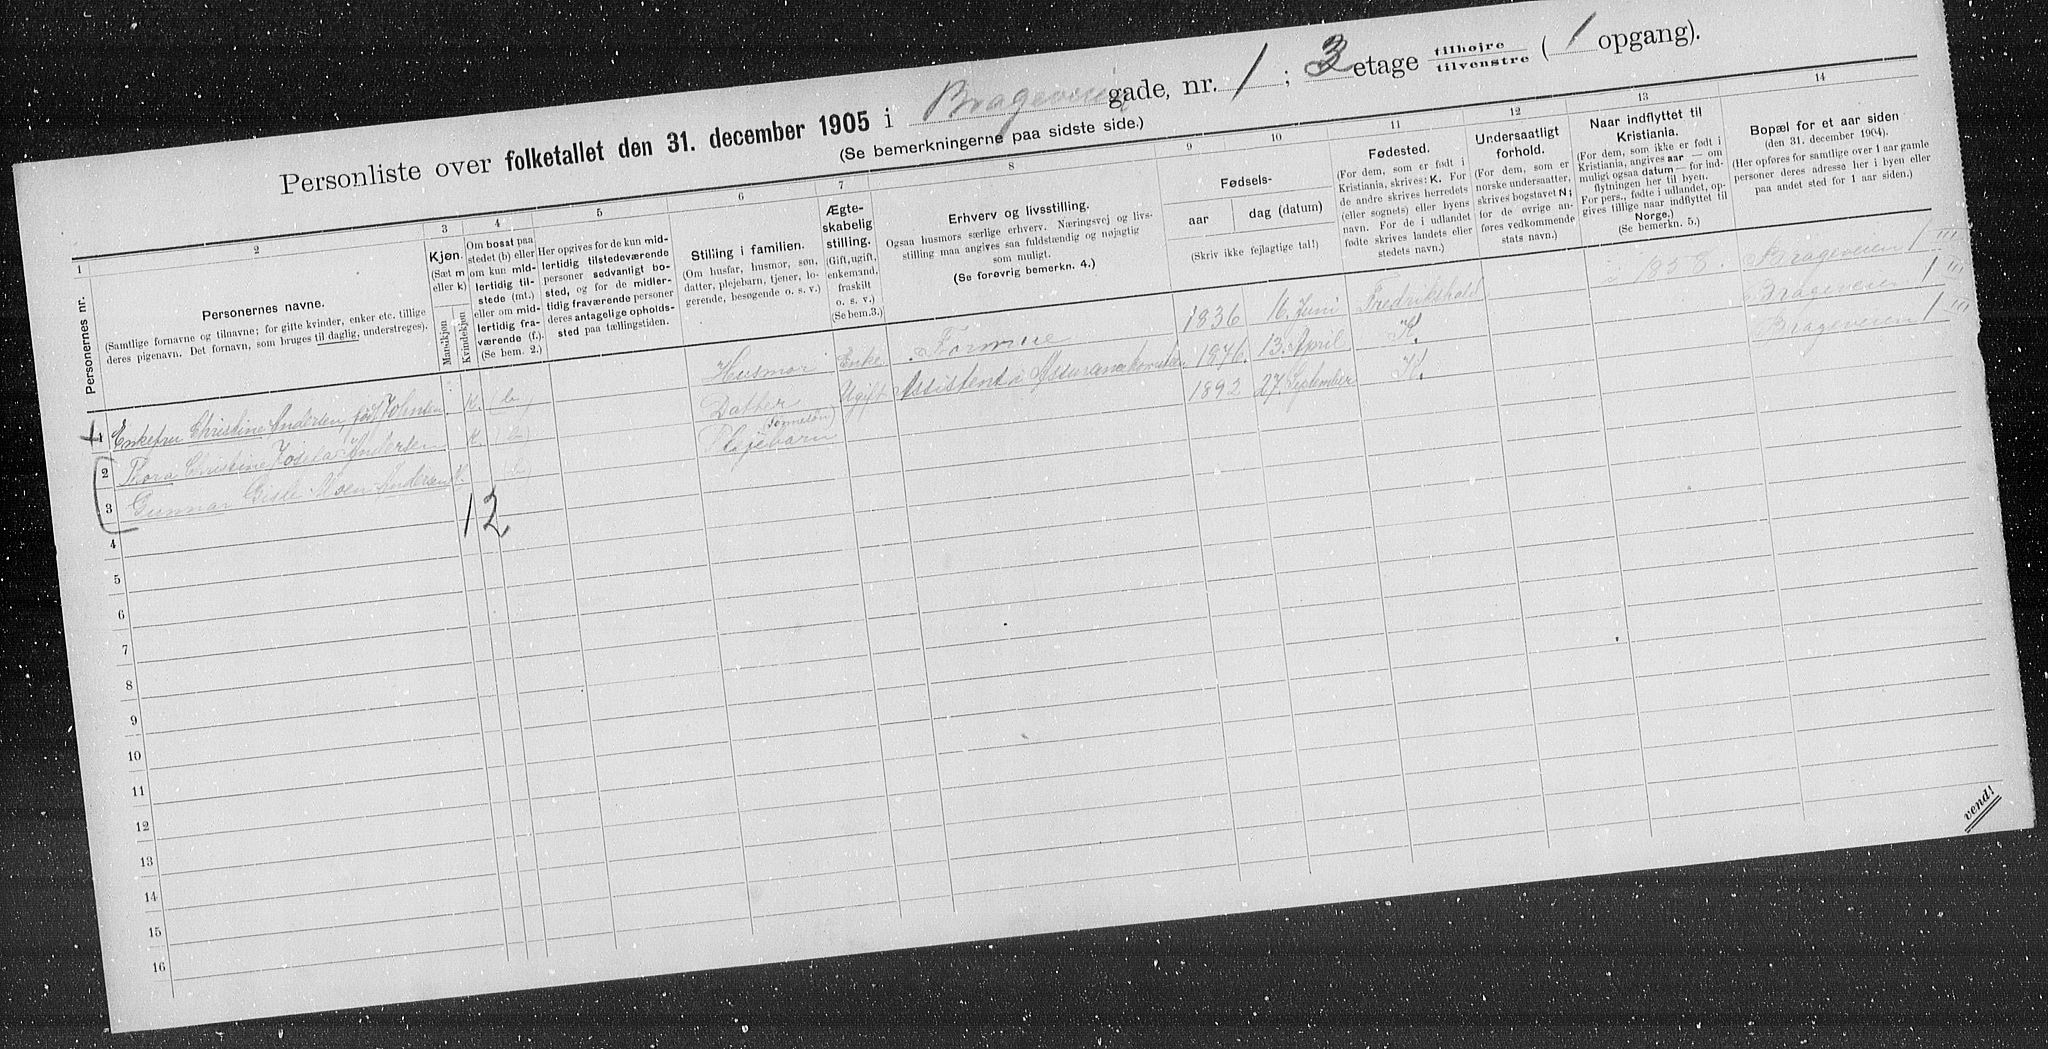 Personliste over folketallet den 31. december 1905 i Brageveien gade, nr. 1 ; 3 etage tilhøjre tilvenstre ( 1 opgang).
(Se bemerkningerne paa sidste side.)
1 2 3 4 5 6 7 8 9 10 11 12 13 14
Personernes nr.
Personernes navne.
(Samtlige fornavne og tilnavne; for gifte kvinder, enker etc. tillige
deres pigenavn. Det fornavn, som bruges til daglig, understreges).
Kjøn.
(Sæt m
eller k)
Mandkjøn
Kvindekjøn
Om bosat paa
stedet (b) eller
om kun mid-
lertidig til-
stede (mt.)
eller om mid-
lertidig fra-
værende (f.).
(Se bem. 2.)
Her opgives for de kun mid-
lertidig tilstedeværende
personer sedvanligt bo-
sted, og for de midler-
tidig fraværende personer
deres antagelige opholds-
sted paa tællingstiden.
Stilling i familien.
(Om husfar, husmor, søn,
datter, plejebarn, tjener, lo-
gerende, besøgende o. s. v.)
Ægte-
skabelig
stilling.
(Gift, ugift,
enkemand,
fraskilt
o. s. v.)
(Se bem.3.)
Erhverv og livsstilling.
Ogsaa husmors særlige erhverv. Næringsvej og livs-
stilling maa angives saa fuldstændig og nøjagtig
som muligt.
(Se forøvrig bemerkn. 4.)
Fødsels-
aar
dag (datum)
(Skriv ikke fejlagtige tal!)
Fødested.
(For dem, som er født i
Kristiania, skrives: K. For
de andre skrives herredets
(eller sognets) eller byens
navn. For de i udlandet
fødte skrives landets eller
stedets navn.)
Undersaatligt
forhold.
(For dem, som er
norske undersaatter,
skrives bogstavet N;
for de øvrige an-
føres vedkommende
stats navn.)
Naar indflyttet til
Kristiania.
(For dem, som ikke er født i
Kristiania, angives aar — om
muligt ogsaa datum — for ind-
flytningen her til byen.
For pers., fødte i udlandet, op-
gives tillige naar indflyttet til
Norge.)
(Se bemerkn. 5.)
Bopæl for et aar siden
(den 31. december 1904).
(Her opføres for samtlige over 1 aar gamle
personer deres adresse her i byen eller
paa andet sted for 1 aar siden.)
1 Enkefru Christine Andersen født Johnsen. K. (b) Husmor Enke Formue 1836 16 Juni Fredrikshald i 1858. Brageveien 1 III
2 Thora Christine Josefa Andersen K. (b) Datter Ugift Assistent i 1876. 13. April K. Brageveien 1 III
3 Gunnar Gisle Andersen (b) Plejebarn (Sønnesøn) 1892 27. September K. Brageveien 1 III
1 2
4
5
6
7
8
9
10
11
12
13
14
15
16
vend!